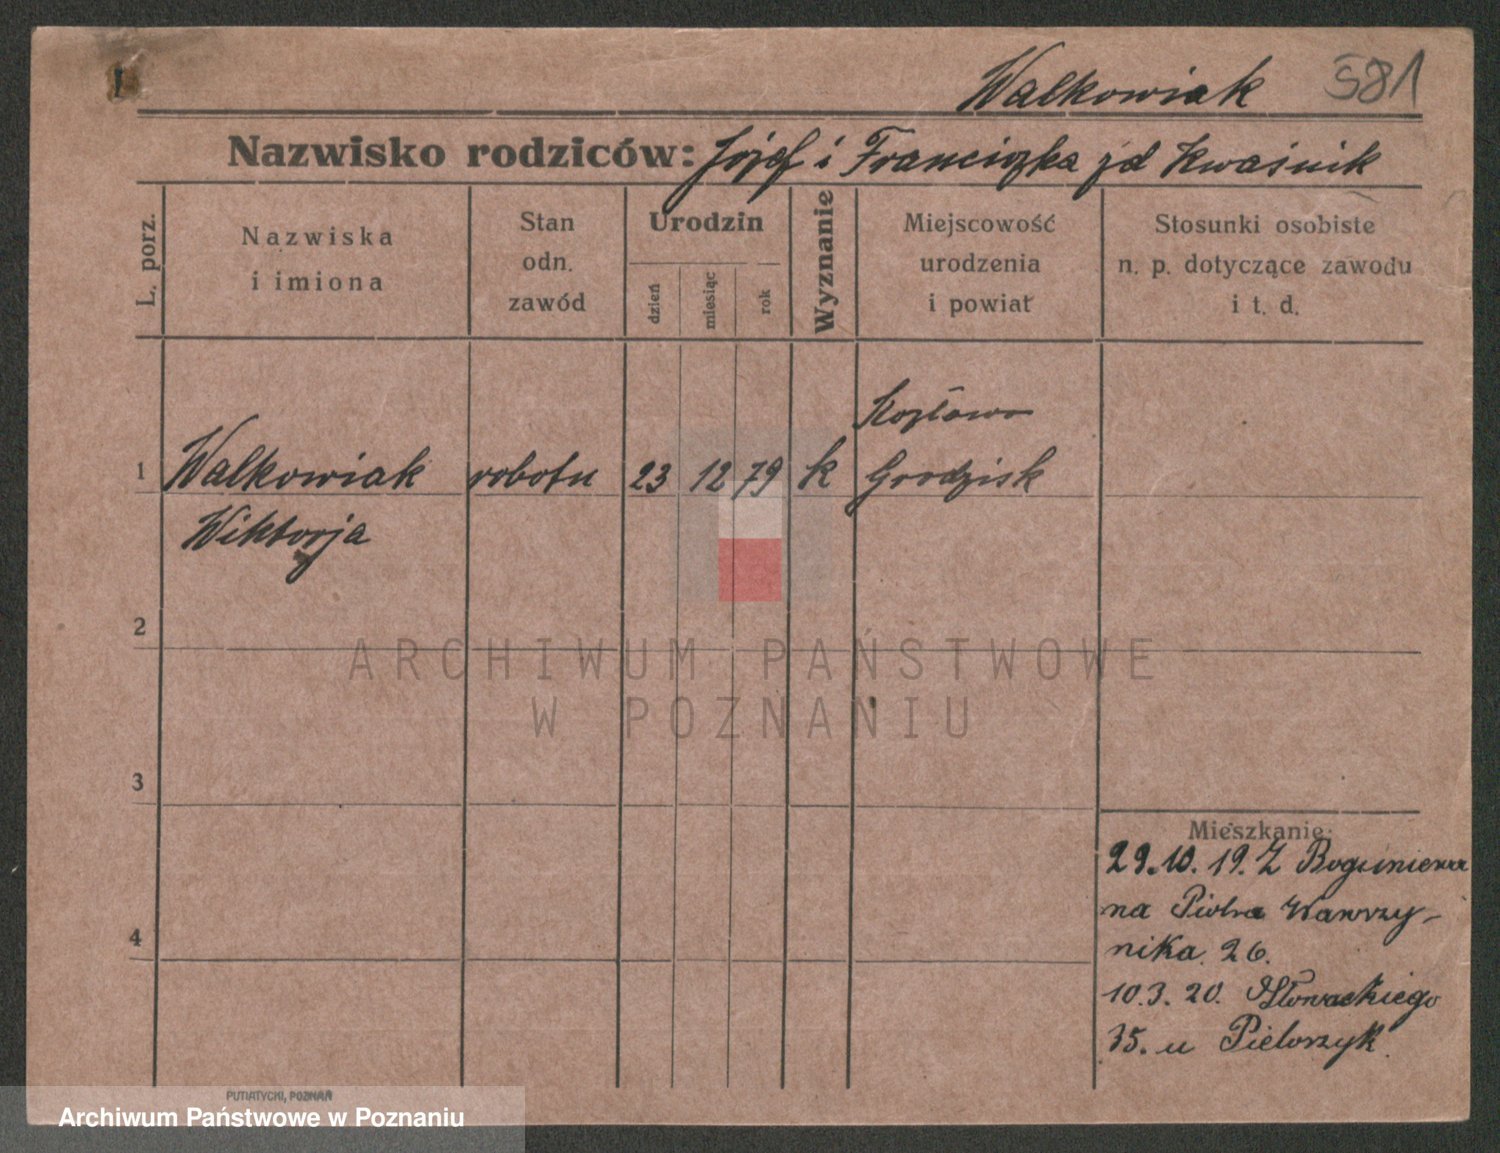 Walkowiak 581
Nazwisko rodziców: Józef i Franciszka zd Kwaśnik
L. porz.
Nazwiska
i imiona
Stan
odn.
zawód
Urodzin
dzień
miesiąc
rok
Wyznanie
Miejscowość
urodzenia
i powiat
Stosunki osobiste
n. p. dotyczące zawodu
i t. d.
Kozłowo
1 Walkowiak robotn 23 12 79 k Grodzisk
Wiktorja
2
3
4
Mieszkanie:
29.10.19. Z Boguniewa
na Piotra Wawrzy-
nika 26.
10.3.20. Słowackiego
35. u Pielorzyk
PUTIATYCKI, POZNAŃ
ARCHIWUM PAŃSTWOWE
W POZNANIU
Archiwum Państwowe w Poznaniu